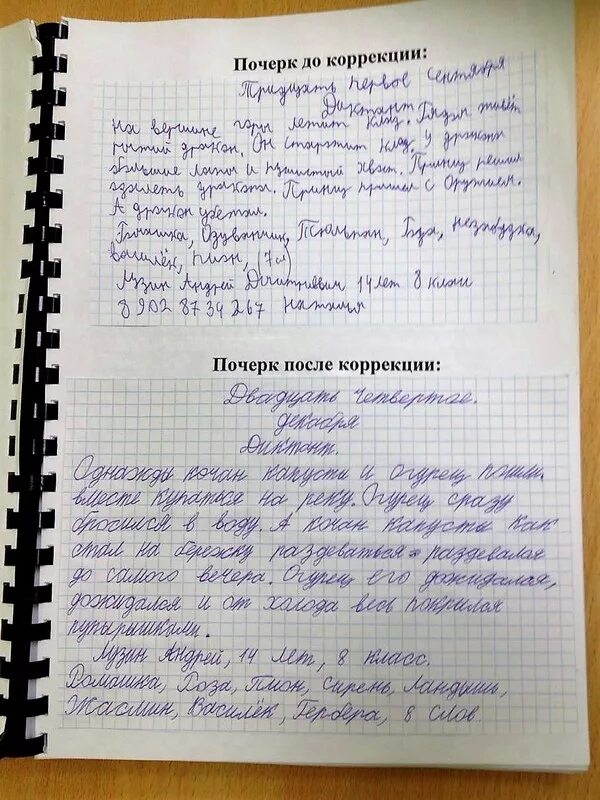 Почерк до коррекции:
Тридцать первое сентября
Диктант
На вершине горы летит клад. Рядом живёт
рыжий дракон. Он старжит клад. У дракона
большие лапы и пушистый хвост. Принц решил
одалеть дракона. Принц пришел с оружием.
А дракон убежал.
Ромашка, Одуванчик, Тюльпан, Роза, незабудка,
василёк, пион, (7 сл)
Музин Андрей Дмитриевич 14 лет 8 класс
8 902 87 34 267 Наталья
Почерк после коррекции:
Двадцать четвертое.
декабря
Диктант.
Однажды кочан капусты и огурец пошли
вместе купаться на реку. Огурец сразу
бросился в воду. А кочан капусты как
стал на бережку раздеваться - раздевался
до самого вечера. Огурец его дожидался,
дожидался и от холода весь покрылся
пупырышками.
Музин Андрей, 14 лет, 8 класс.
Ромашка, Роза, Пион, Сирень, Ландышь,
Жасмин, Василёк, Гербера, 8 слов.